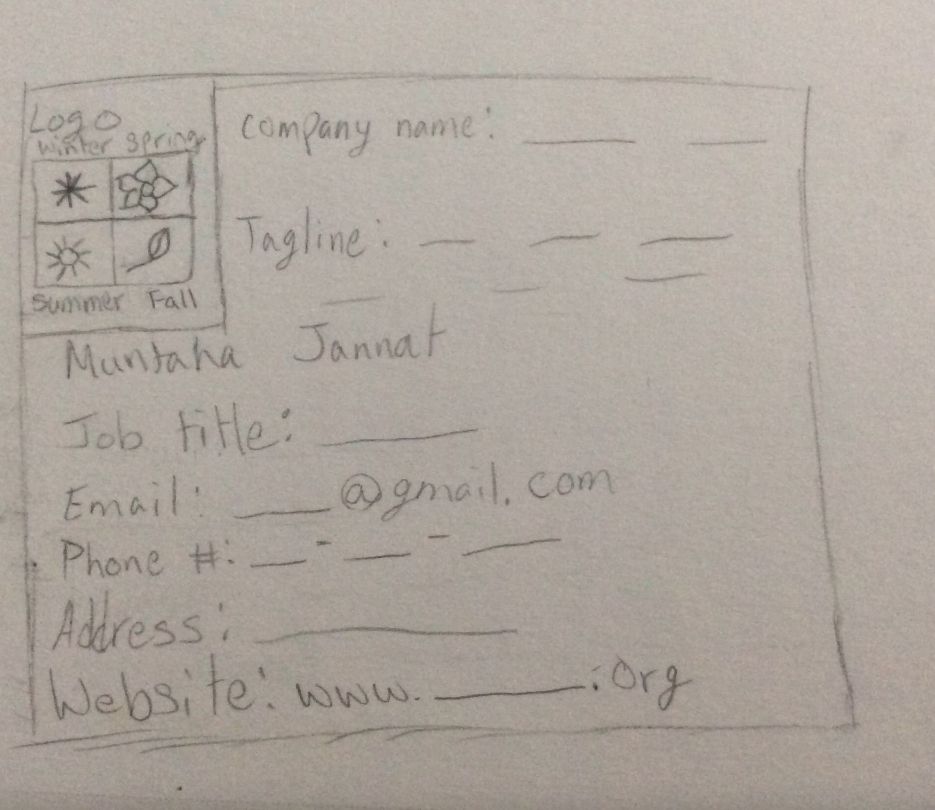 Logo
winter spring
Summer Fall
Company name: ____ ____
Tagline: ___ ___ ___
___ ___ ___
Muntaha Jannat
Job title: ____
Email: ____@gmail.com
Phone #: __-__-____
Address: ____
Website: www.____.org